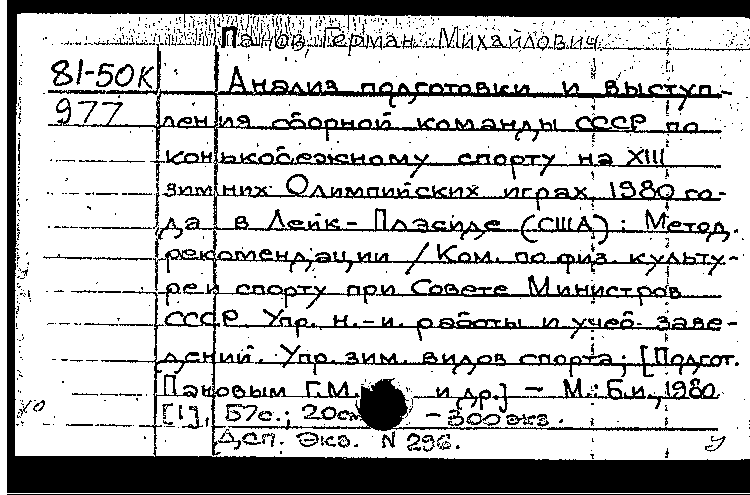 Панов, Герман Михайлович
81-50К
977
Анализ подготовки и выступ-
ления сборной команды СССР по
конькобежному спорту на XIII
зимних Олимпийских играх 1980 го-
да в Лейк-Плэсиде (США): Метод.
рекомендации / Ком. по физ. культу-
ре и спорту при Совете Министров
СССР. Упр. н.-и. работы и учеб. заве-
дений. Упр. зим. видов спорта; [Подгот.
Пановым Г.М. и др.] - М.: Б.и., 1980
[1], 57с.; 20см - 300 экз.
Дсп. Экз. N 296.